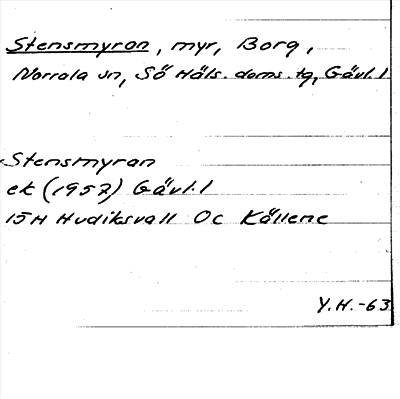 Stensmyran, myr, Borg,
Norrala sn, Sö Häls. doms. tg, Gävl. l
Stensmyran
ek (1957) Gävl. l
15H Hudiksvall Oc Källene
Y.H. -63